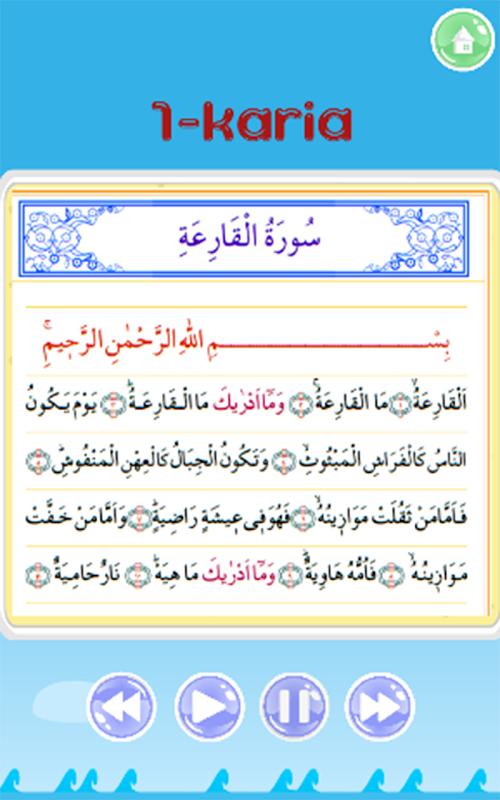 1-karia
سُورَةُ الْقَارِعَةِ
بِسْــــــــــــــــــمِ اللهِ الرَّحْمٰنِ الرَّحٖيمِ
اَلْقَارِعَةُۙ ﴿١﴾ مَا الْقَارِعَةُۚ ﴿٢﴾ وَمَٓا اَدْرٰيكَ مَا الْقَارِعَةُۜ ﴿٣﴾ يَوْمَ يَكُونُ
النَّاسُ كَالْفَرَاشِ الْمَبْثُوثِۙ ﴿٤﴾ وَتَكُونُ الْجِبَالُ كَالْعِهْنِ الْمَنْفُوشِۜ ﴿٥﴾
فَاَمَّا مَنْ ثَقُلَتْ مَوَازٖينُهُۙ ﴿٦﴾ فَهُوَ فٖي عٖيشَةٍ رَاضِيَةٍۜ ﴿٧﴾ وَاَمَّا مَنْ خَفَّتْ
مَوَازٖينُهُۙ ﴿٨﴾ فَاُمُّهُ هَاوِيَةٌۜ ﴿٩﴾ وَمَٓا اَدْرٰيكَ مَا هِيَهْۜ ﴿١٠﴾ نَارٌ حَامِيَةٌ ﴿١١﴾